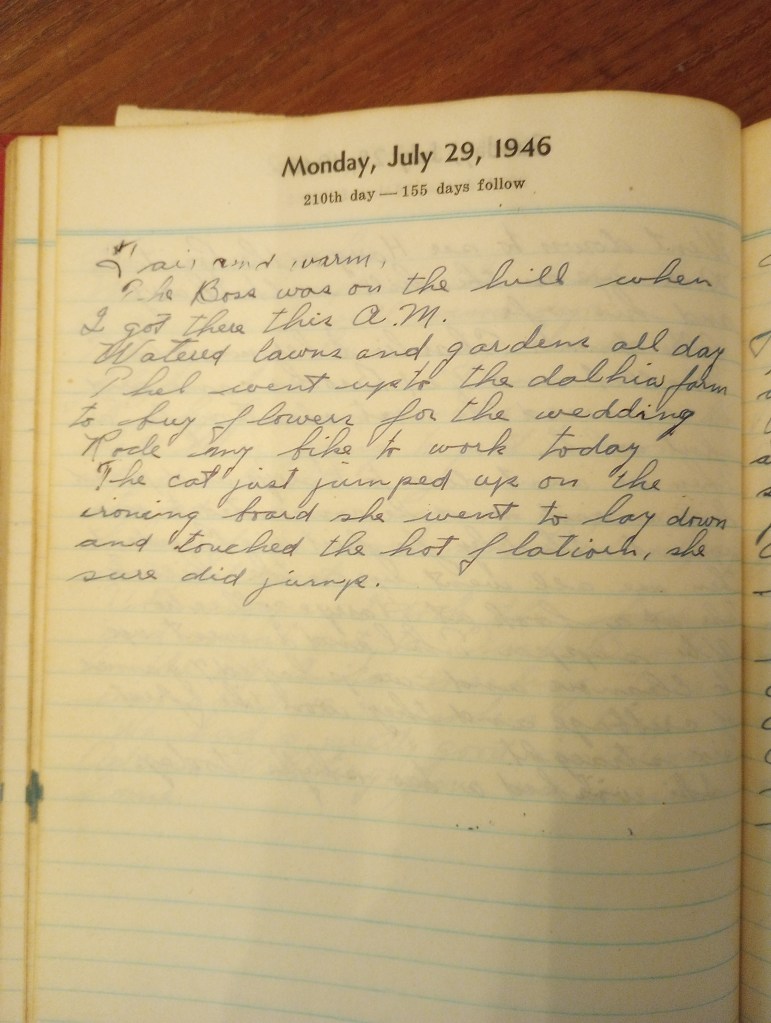 Monday, July 29, 1946
210th day — 155 days follow
Fair and warm.
The Boss was on the hill when
I got there this A.M.
Watered lawns and gardens all day
Phel went up to the dalhia farm
to buy flowers for the wedding
Rode my bike to work today
The cat just jumped up on the
ironing board she went to lay down
and touched the hot flatiorn, she
sure did jump.